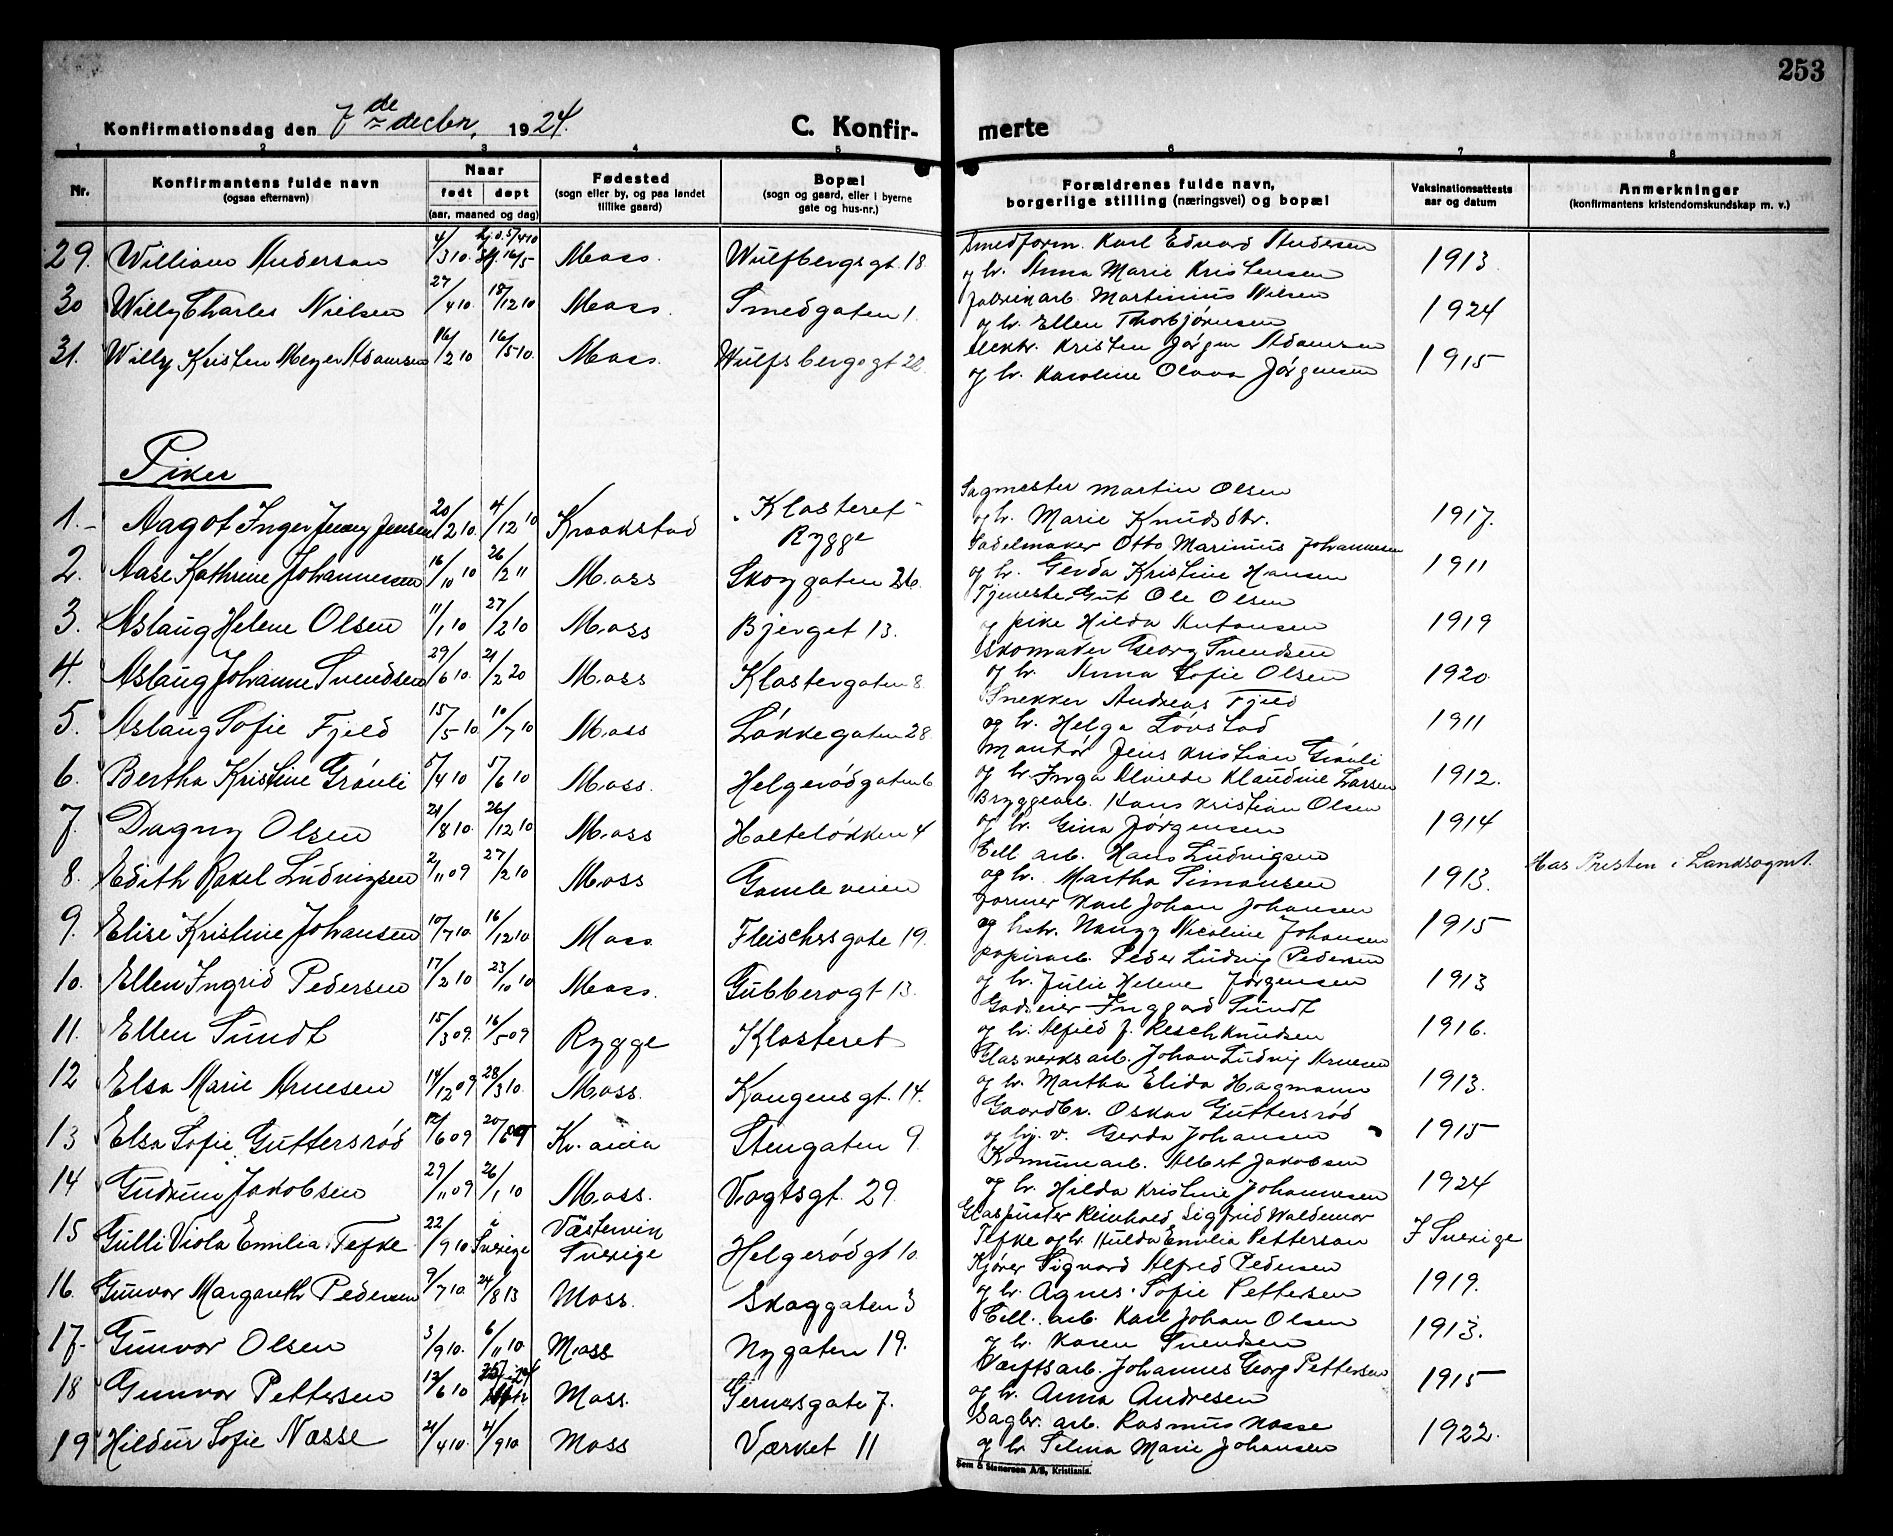 253
Konfirmationsdag den 7de decbr. 1924.
C. Konfirmerte
1 2 3 4 5 6 7 8
Nr.
Konfirmantens fulde navn
(ogsaa efternavn)
Naar
født døpt
(aar, maaned og dag)
Fødested
(sogn eller by, og paa landet
tillike gaard)
Bopæl
(sogn og gaard, eller i byerne
gate og hus-nr.)
Forældrenes fulde navn,
borgerlige stilling (næringsvei) og bopæl
Vaksinationsattests
aar og datum
Anmerkninger
(konfirmantens kristendomskundskap m. v.)
29. William Anderson 4/3 10. Moss. Wulfbergsgt. 18. Smedform. Karl Edvard Andersen
og h. Anna Marie Kristensen 1913.
30 Willy Charles Nielsen 27/4 10. 18/12 10 Moss. Smedgaten 1. Fabrikarb. Martinius Nilsen
og h. Ellen Thorbjørnsen 1924
31. Willy Kristen Meyer Adamsen 16/2 10 16/5 10. Moss. Wulfsbergsgt 22. Elektr. Kristen Jørgen Adamsen
og h. Karoline Olava Jørgensen 1915
Piker
1. Aagot Inger Jenny Jensen 20/2 10. 4/12 10 Kraakstad Klosteret
Rygge Sagmester Martin Olsen
og h. Marie Knudsdtr. 1917.
2. Aase Kathrine Johannessen 16/10 10 26/2 11 Moss Skoggaten 26. Sadelmaker Otto Marinius Johannessen
og h. Gerda Kristine Hansen 1911
3. Aslaug Helene Olsen 11/1 10 27/2 10 Moss Bjerget 13. Tjeneste Gut Ole Olsen
og pike Hilda Antonsen 1919
4. Aslaug Johanne Svendsen 29/6 10. 21/2 20 Moss Klostergaten 8. Skomaker Georg Svendsen
og h. Anna Sofie Olsen 1920
5. Aslaug Sofie Fjeld 15/5 10. 10/7 10 Moss Løkkegaten 28 Snekker Andreas Fjeld
og h. Helga Løvstad 1911
6. Bertha Kristine Grønli 5/4 10 5/6 10 Moss. Helgerødgaten 6 Montør Jens Kristian Grønli
og h. Inga Alvilde Klaudine Larsen 1912.
7. Dagny Olsen 21/8 10. 26/12 10 Moss Holteløkken 4 Bryggearb. Hans Kristian Olsen
og h. Gina Jørgensen 1914
8. Edith Rakel Ludvigsen 2/11 09 27/2 10 Moss Gamleveien Cell. arb. Hans Ludvigsen
og h. Martha Simonsen 1913. Hos Presten i Landsognet.
9. Elise Kristine Johansen 10/7 10. 16/12 10 Moss. Fleischersgate 19. Former Karl Johan Johansen
og hstr. Nanzy Nicoline Johansen 1915
10. Ellen Ingrid Pedersen 17/2 10 23/10 10 Moss. Gubberogt 13. Papirarb. Peder Ludvig Pedersen
og h. Julie Helene Jørgensen 1913
11. Ellen Sundt 15/3 09. 16/5 09 Rygge Klosteret Godseier Inggard Sundt
og h. Alfild J. Resch Knudsen 1916.
12 Elsa Marie Arnesen 14/12 09 28/3 10. Moss. Kongensgt. 14. Glasverksarb. Johan Ludvig Arnesen
og h. Martha Elida Hagmann 1913.
13 Elsa Sofie Guttersrød 12/6 09 Kr.ania Stengaten 9 Gaardbr. Oskar Guttersrød
og h. v. Gerda Johansen 1915
14 Gudrun Jakobsen 29/11 09 26/1 10 Moss. Vogtsgt. 29 Kommunearb. Albert Jakobsen
og h. Hilda Kristine Johannesen 1924
15 Gulli Viola Emilia Tefke 22/9 10 i
Sverige Västervik
Sverige Helgerødgt 10. Glaspuster Reinhold Sigfrid Waldemar
Tefke og h. Hulda Emilia Petterson I Sverige
16. Gunvor Margareth Pedersen 9/7 10. 24/8 13 Moss. Skoggaten 3 Kjører Sigvard Alfred Pedersen
og h. Agnes Sofie Pettersen 1919.
17. Gunvor Olsen 3/9 10. 6/11 10 Moss Nygaten 19. Cell. arb. Karl Johan Olsen
og h. Karen Svendsen 1913.
18 Gunvor Pettersen 12/6 10 Moss. Gernersgate 7. Værftsarb. Johannes Georg Pettersen
og h. Anna Andresen 1915
19 Hildur Sofie Næsse 21/4 10. 4/9 10 Moss Værket 11 Sagbr. arb. Rasmus Næsse
og h. Selma Marie Johansen 1922.
Sem & Stenersen A/S, Kristiania.